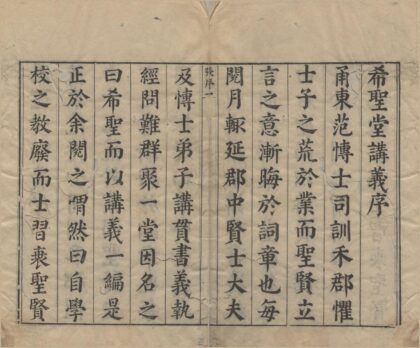 希聖堂講義序
甬東范博士司訓禾郡懼
士子之荒於業而聖賢立
言之意漸晦於詞章也每
閱月輒延郡中賢士大夫
張序一
及博士弟子講貫書義執
經問難群聚一堂因名之
曰希聖而以講義一編是
正於余閱之喟然曰自學
校之教廢而士習衰聖賢